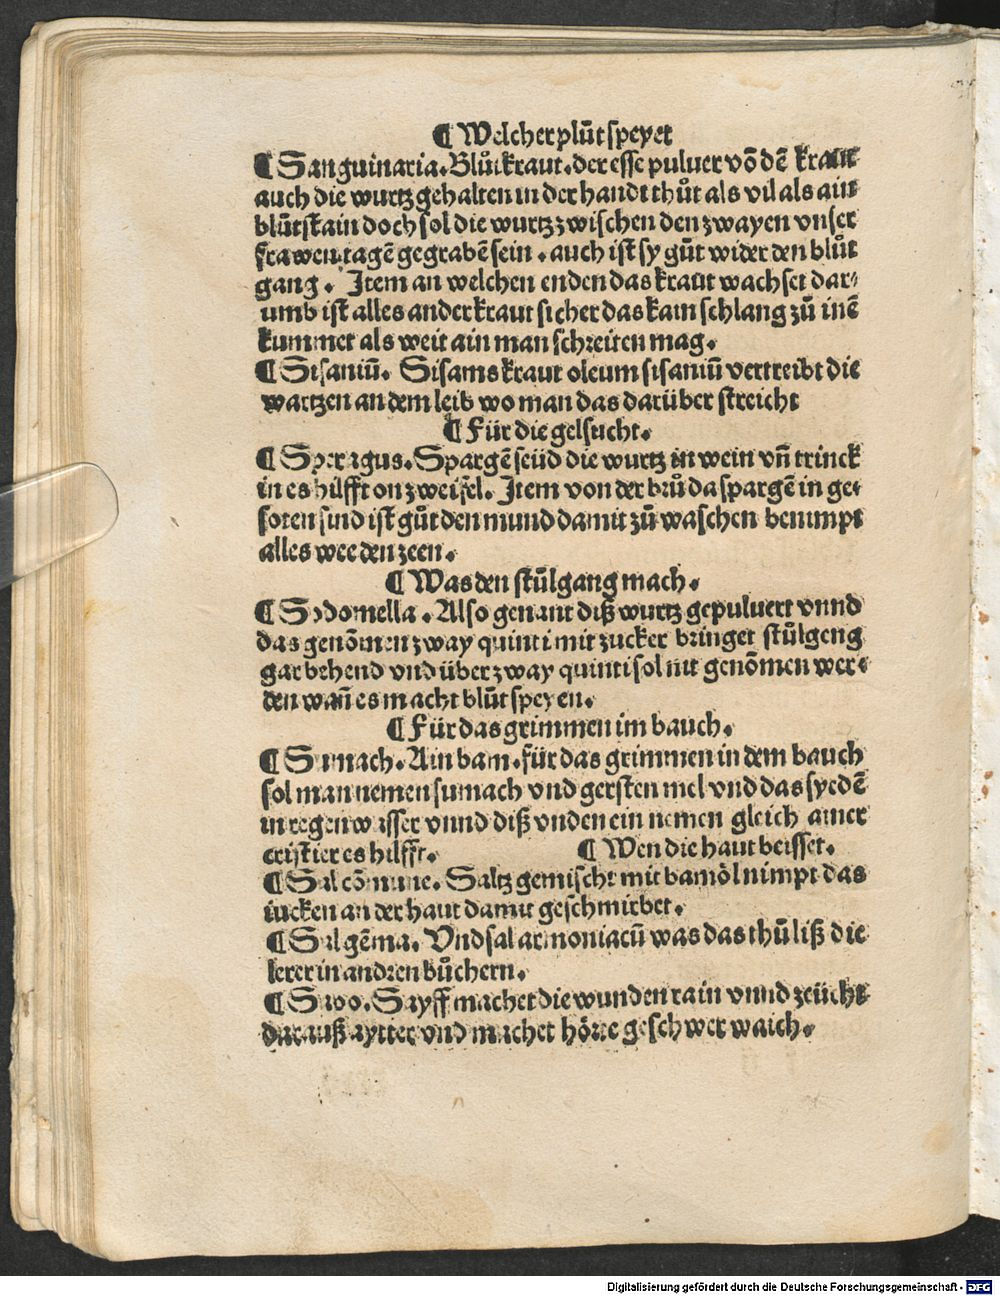 ¶ Welcher plůt speyet
¶ Sanguinaria. Blůtkraut. der esse puluer võ dẽ kraut
auch die wurtz gehalten in der handt thůt als vil als ain
blůtstain doch sol die wurtz zwischen den zwayen vnser
frawen tagẽ gegrabẽ sein. auch ist sy gůt wider den blůt
gang. Jtem an welchen enden das kraut wachset dar⸗
umb ist alles ander kraut sicher das kain schlang zů inẽ
kummet als weit ain man schreiten mag.
¶ Sisaniū. Sisams kraut oleum sisaniū vertreibt die
wartzen an dem leib wo man das darüber streicht
¶ Für die gelsucht.
¶ Speragus. Spargẽ seüd die wurtz in wein vñ trinck
in es hilfft on zweifel. Jtem von der brů da spargẽ in ge⸗
soten sind ist gůt den mund damit zů waschen benimpt
alles wee den zeen.
¶ Was den stůlgang mach.
¶ Sodomella. Also genant diß wurtz gepuluert vnnd
das genõmen zway quinti mit zucker bringet stůlgeng
gar behend vnd über zway quinti sol nit genõmen wer⸗
den wañ es macht blůt speyen.
¶ Für das grimmen im bauch.
¶ Sumach. Ain bam. für das grimmen in dem bauch
sol man nemen sumach vnd gersten mel vnd das syedẽ
in regen wasser vnnd diß vnden ein nemen gleich ainer
cristier es hilfft. ¶ Wen die haut beisset.
¶ Sal cõmune. Saltz gemischt mit bamöl nimpt das
iucken an der haut damit geschmirbet.
¶ Sal gẽma. Vnd sal armoniacū was das thů liß die
lerer in andren bůchern.
¶ Sapo. Sayff machet die wunden rain vnnd zeücht
darauß aytter vnd machet hörte geschwer waich.
Digitalisierung gefördert durch die Deutsche Forschungsgemeinschaft - DFG